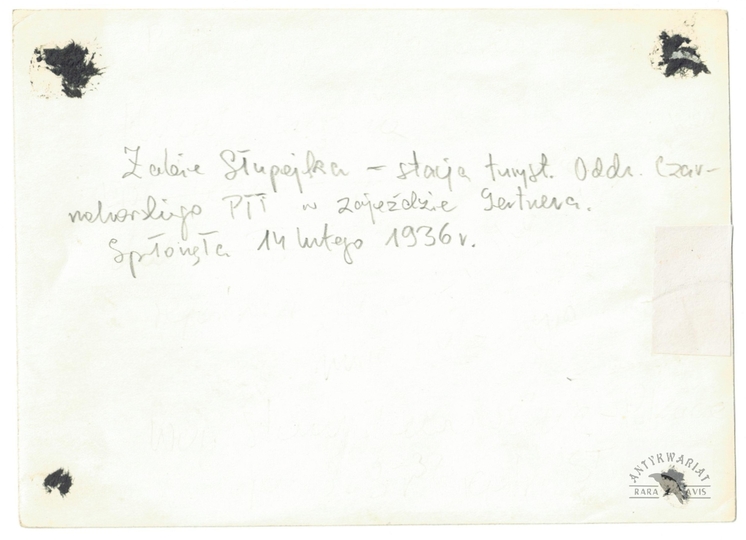 Żabie Słupejka – stacja turyst. Oddz. Czar-
nohorskiego PTT w zajeździe Gertnera.
Spłonęła 14 lutego 1936 r.
ANTYKWARIAT
RARA AVIS